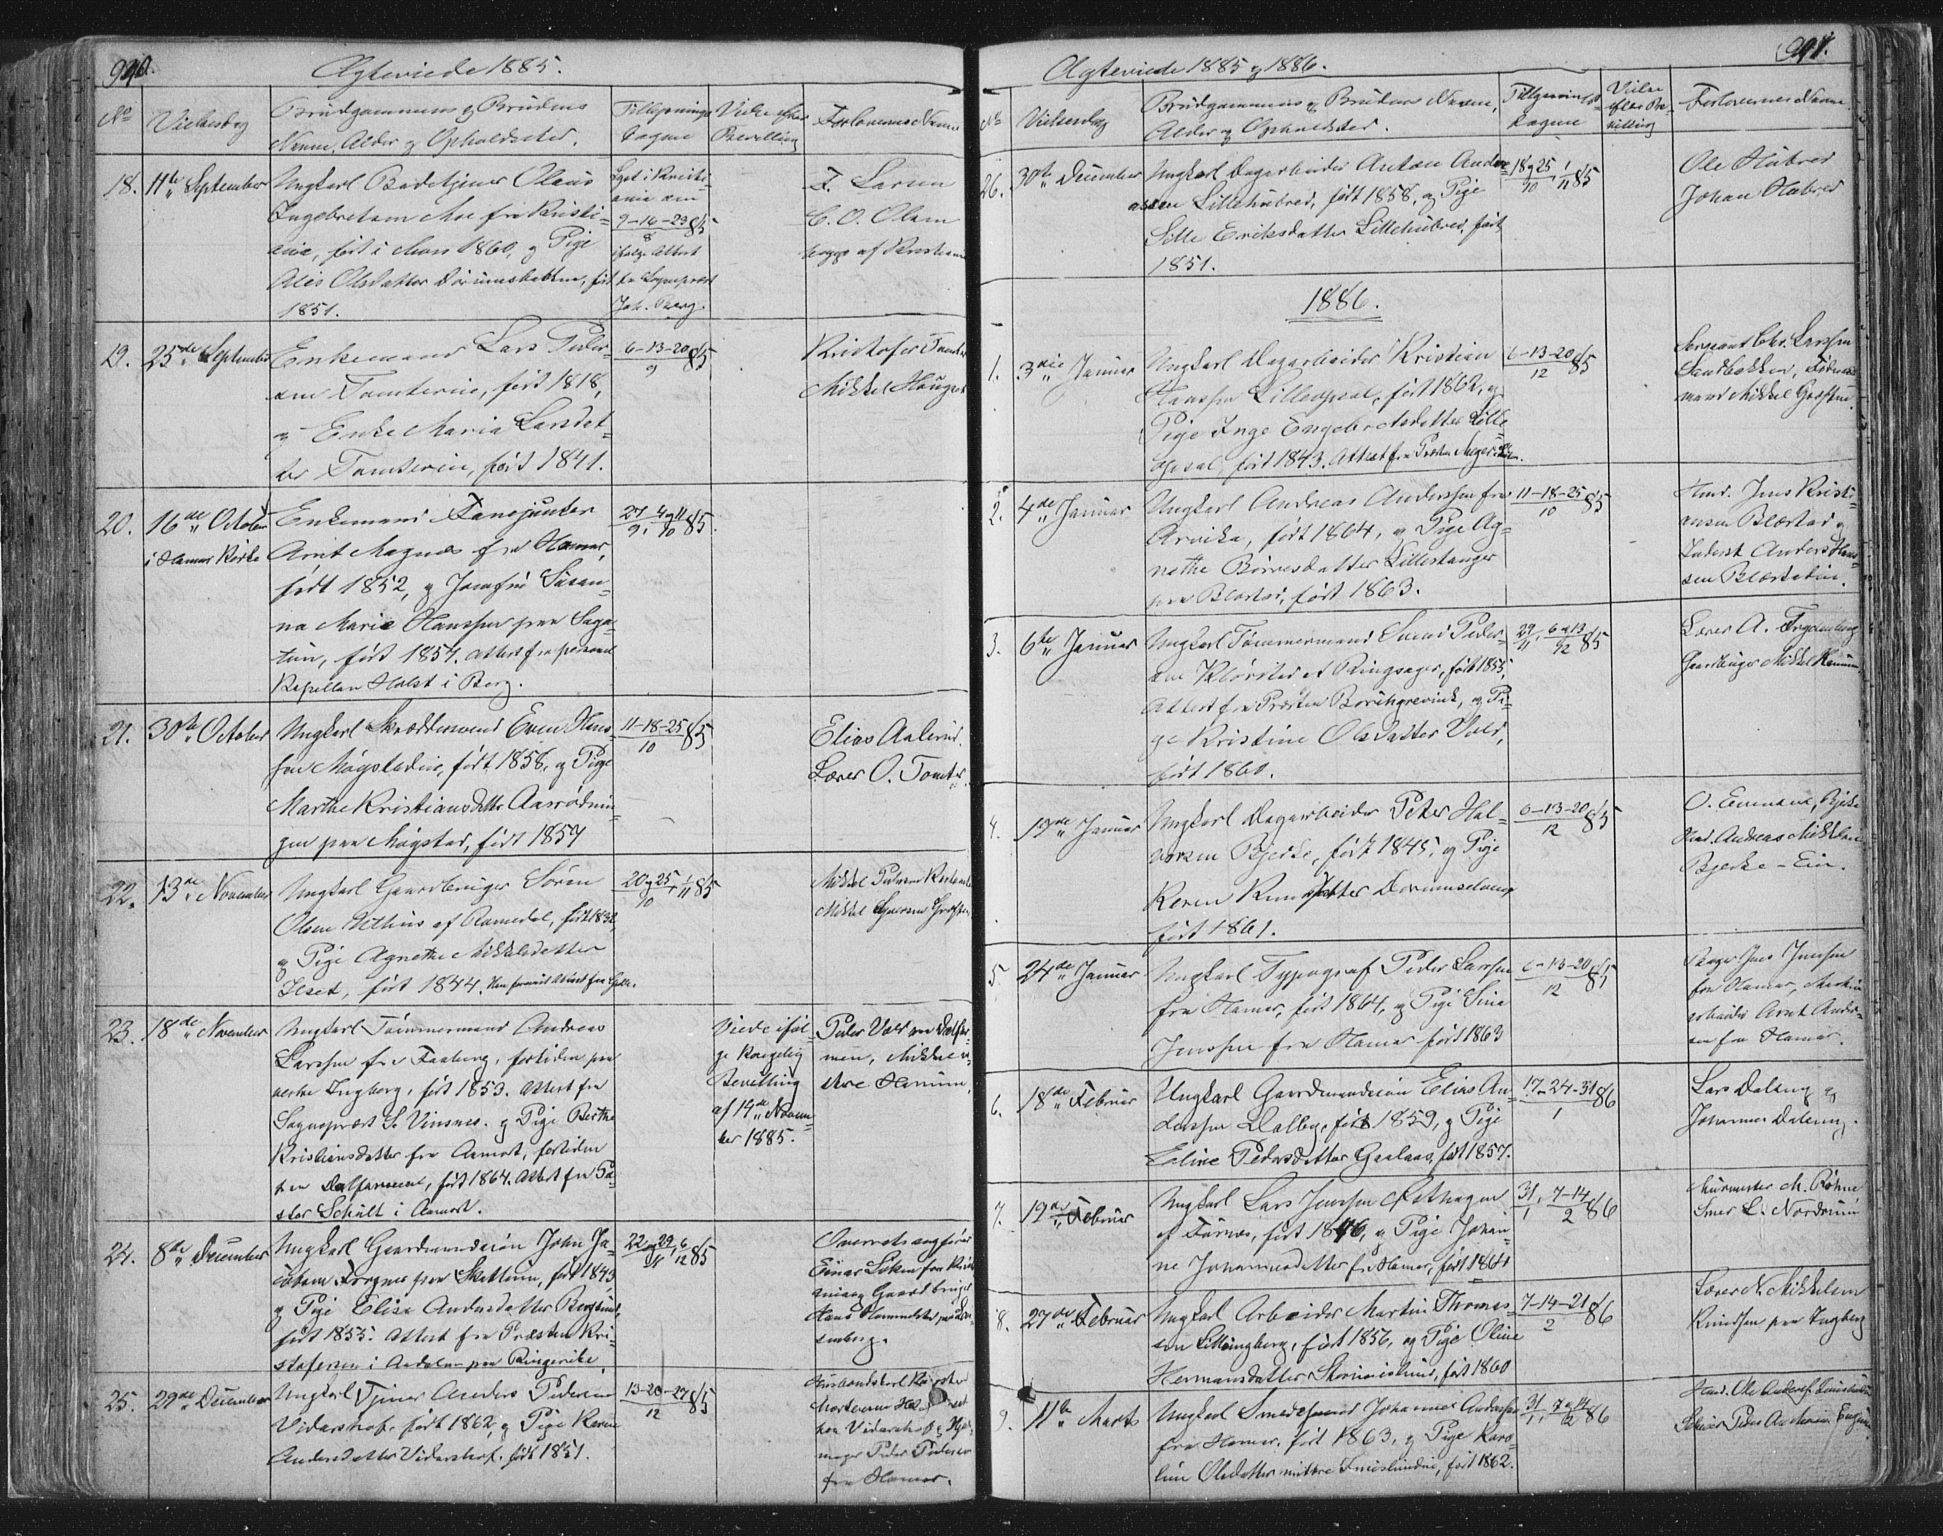 990.
Ægteviede 1885.
No
Vielsesdag
Brudgommens og Brudens
Navne, Alder og Opholdsted.
Tillysnings
dagene
Vielse efter
Bevilling
Forlovernes Navne
18. 11te September
Ungkarl Badetjener Olaus
Ingebretsen Moe fra Kristi-
ania, født i Mars 1860, og Pige
Olsdatter født
1851.
Lyst i Kristi-
ania den
9-16-23/8 85
ifølge Attest
fra Sogneprest
F. Larsen
C. O. Olsen
begge af Kristiania
19. 25de September
Enkemand Lars Peder-
sen Tomterin, født 1818,
og Enke Maria Larsdat-
ter Tomterin, født 1841.
6-13-20/9 85
Kristofer Tomter
Mikkel Hauger
20. 16de October
i Hamar Kirke
Enkemand Fanejunker
Arnt Magnus fra Hamar,
født 1852, og Josefine Susan-
na Marie Hanssen paa Saga-
tun, født 1857. Attest fra personel
Kapellan Holst i Berg.
27/9, 4 og 11/10 85.
21. 30te October
Ungkarl Skræddersvend Even Hans-
sen Møgstadeie, født 1858, og Pige
Marthe Kristiansdatter Aasrødnin-
gen paa Møgstad, født 1857
11-18-25/10 85
Elias Aalerud.
Lærer O. Tomter.
22. 13de November
Ungkarl Gaardbruger Søren
Olsen af Romedal, født 1832
og Pige Agnethe Mikkelsdatter
Ilset, født 1844.
20 og 25/10, 1/11 85
Mikkel Pedersen
Mikkel
23. 18de November
Ungkarl Tømmermand Andreas
Larssen fra Faaberg, fortiden paa
nedre Ingberg, født 1853. Attest fra
Sogneprest S. Vinsnes. og Pige Berthe
Kristiansdatter fra Aamot, fortiden
paa Dalfarmen, født 1864. Attest fra Pa-
stor Schult i Aamot.
Viede iføl-
ge Kongelig
Bevilling
af 14de Novem-
ber 1885.
Peder Vold
men, Mikkel
Hanum,
24. 8de December
Ungkarl Gaardmandssøn John Ja-
cobsen paa Skattum, født 1843,
og Pige Elise Andersdatter Berglund,
født 1855. Attest fra Præsten Kri-
stofersen i Aadalen paa Ringerike.
22 og 29/11, 6/12 85
Overretssagfører
Einar
Gaardbruger
Hans
25. 29de December
Ungkarl Tjener Anders Pedersen
Vidarshof, født 1862, og Pige Karen
Andersdatter Vidarshof, født 1851.
13-20-27/12 85
Husbondskarl
Mortensen
paa Vidarshof,
Peder Pedersen
fra Hamar.
991.
Ægteviede 1885 og 1886.
No
Vielsesdag
Brudgommens og Brudens Navne,
Alder og Opholdsted.
Tillysnings-
dagene
Vielse
efter Be-
villing
Forlovernes Navne
26. 30te December
Ungkarl Dagarbeider Anton Ander-
assen Lillehubred, født 1858, og Pige
Sille Eriksdatter Lillehubred, født
1851.
18 og 25/10, 1/11 85
Ole Hubred
Johan Hubred
1886.
1. 3die Januar
Ungkarl Dagarbeider Kristian
Hanssen Lilleopsal, født 1862, og
Pige Inge Engebretsdatter Lille-
opsal, født 1843. Attest fra Præsten
6-13-20/12 85
Sergeant Chr. Larssen
Sandbakken,
mand Mikkel
2. 4de Januar
Ungkarl Andreas Anderssen fra
Arvika, født 1864, og Pige Ag-
nethe Børresdatter Lillestanger
paa Blæstad, født 1863.
11-18-25/10 85
Husmd. Jens Kristi-
ansen Blæstad og
Inderst Anders Hans-
sen Blæstadeie.
3. 6te Januar
Ungkarl Tømmermand Svend Peder-
sen Kløvstad af Ringsager, født 1855,
Attest fra Præsten Borchgrevink, og Pi-
ge Kristine Olsdatter Vold,
født 1860.
29/11, 6 og 13/12 85
Lærer A.
Gaardbruger Mikkel Hanum
4. 19de Januar
Ungkarl Dagarbeider Peter Hal-
vorsen Bjerke, født 1845, og Pige
Karen Knudsdatter
født 1861.
6-13-20/12 85
O. Evensen, Bjerke
Husmd. Andreas Mikkelsen
Bjerke-Eie.
5 24de Januar
Ungkarl Typograf Peder Larssen
fra Hamar, født 1864, og Pige Sina
Jenssen fra Hamar født 1863
6-13-20/12 85
Bager Jens Jenssen
fra Hamar,
arbeider Arnt Ander-
sen fra Hamar.
6. 18de Februar
Ungkarl Gaardmandssøn Elias An-
derssen Dalby, født 1859, og Pige
Eline Pedersdatter Gaalaas, født 1857.
17-24-31/1 86
Lars Daleng og
Johannes Daleng.
7. 19de Februar
Ungkarl Lars Jenssen
af Furnes, født 1846, og Pige Johan-
ne Johannesdatter fra Hamar, født 1861
31/1, 7-14/2 86
Murmester M. Røhne
L. Nordrum
8. 27de Februar
Ungkarl Arbeider Martin Thomas-
sen Lilleingberg, født 1856, og Pige Oline
Hermansdatter født 1860
7-14-21/2 86
Lærer N. Mikkelsen
Knudsen paa Ingberg
9. 11te Marts
Ungkarl Smedesvend Johannes Anderssen
fra Hamar, født 1863, og Pige Karo-
line Olsdatter født 1862.
31/1, 7 og 14/2 86
Husmd. Ole
Peder Andersen